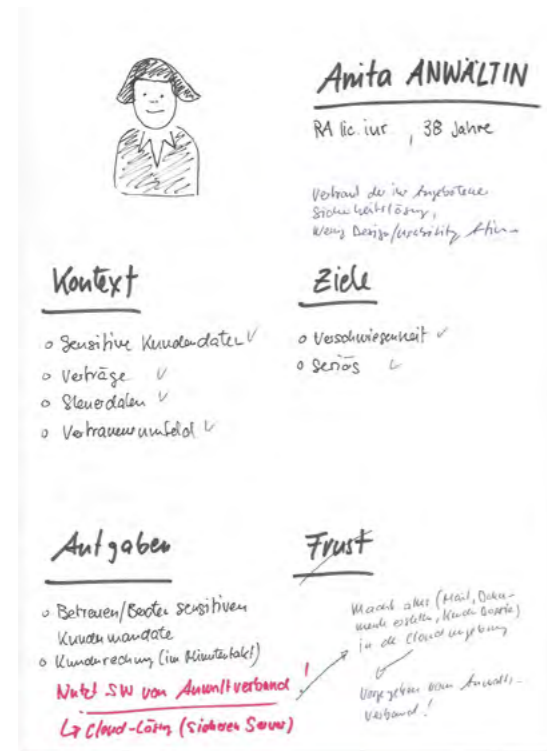 Anita ANWÄLTIN
RA lic. iur , 38 Jahre
Vertraut der ihr Angebotene
Sicherheitslösung,
Wenig Design/Usability
Kontext
o Sensitive Kundendaten ✓
o Verträge ✓
o Steuerdaten ✓
o Vertrauensumfeld ✓
Ziele
o Verschwiegenheit ✓
o Seriös ✓
Aufgaben
o Betreuen/ sensitiven
Kundenmandate
o Kundenrechnung (im Minutentakt)
Nutzt SW von Anwaltverband !
↳ Cloud-Lösung (sicheren Server)
Frust
Macht alles (Mail, Doku-
mente erstellen, Kunden Dossie)
in de Cloudumgebung
Vorgegeben vom Anwalts-
verband!